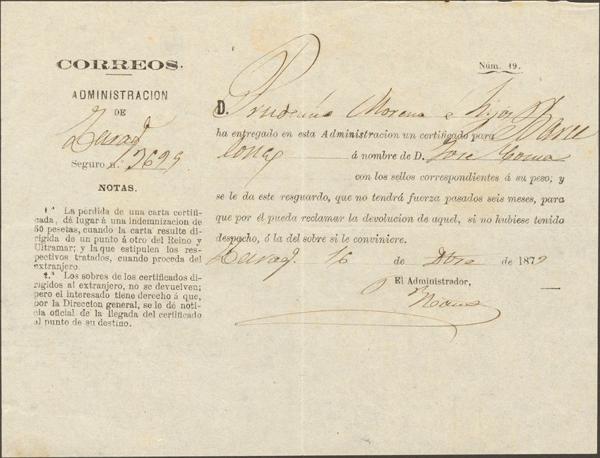 CORREOS.
ADMINISTRACION
DE
Zarag
Seguro n. 3695
NOTAS.
1.ª La pérdida de una carta certifi-
cada, dá lugar á una indemnizacion de
50 pesetas, cuando la carta resulte di-
rigida de un punto á otro del Reino y
Ultramar; y la que estipulen los res-
pectivos tratados, cuando proceda del
extranjero.
2.ª Los sobres de los certificados di-
rigidos al extranjero, no se devuelven;
pero el interesado tiene derecho á que,
por la Direccion general, se le dé noti-
cia oficial de la llegada del certificado
al punto de su destino.
Núm. 19.
D. Prudencio Moreno e hijos
ha entregado en esta Administracion un certificado para Barce
lona á nombre de D. Jose
con los sellos correspondientes á su peso; y
se le da este resguardo, que no tendrá fuerza pasados seis meses, para
que por él pueda reclamar la devolucion de aquel, si no hubiese tenido
despacho, ó la del sobre si le conviniere.
Zarag 16 de Dbre de 187
El Administrador,